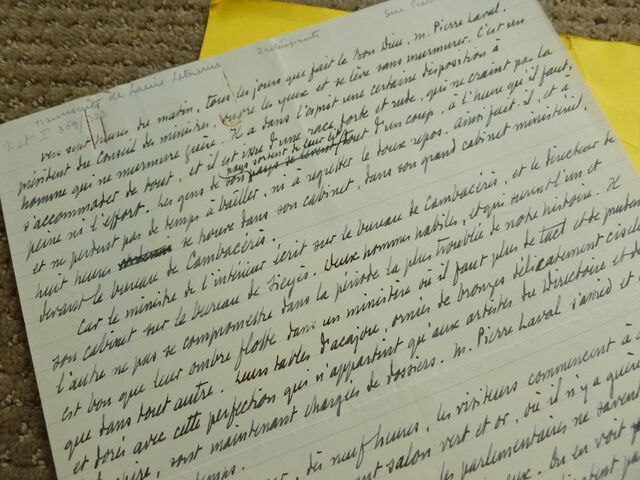 manuscrit de Louis Latzarus Sur Pierre
Vers sept heures du matin, tous les jours que fait le Bon Dieu, M. Pierre Laval,
président du Conseil des ministres, ouvre les yeux et se lève sans murmurer. C'est un
homme qui ne murmure guère. Il a dans l'esprit une certaine disposition à
s'accommoder de tout, et il est issu d'une race forte et rude, qui ne craint pas la
peine ni l'effort. Les gens de son pays se lèvent tout d'un coup, à l'heure qu'il faut,
et ne perdent pas de temps à bâiller, ni à regretter le doux repos. Ainsi fait-il, et à
huit heures se trouve dans son cabinet, dans son grand cabinet ministériel,
devant le bureau de Cambacérès.
Car le ministre de l'intérieur écrit sur le bureau de Cambacérès, et le directeur de
son cabinet sur le bureau de Sieyès. Deux hommes habiles, et qui surent l'un et
l'autre ne pas se compromettre dans la période la plus troublée de notre histoire. Il
est bon que leur ombre flotte dans un ministère où il faut plus de tact et de pruden
que dans tout autre. Leurs tables d'acajou, ornées de bronzes délicatement ciselé
et dorés avec cette perfection qui n'appartint qu'aux artistes du Directoire et de
pire, sont maintenant chargées de dossiers. M. Pierre Laval s'assied et
temps.
dès neuf heures, les visiteurs commencent à a
ant salon vert et or, où il n'y a guère
parlementaires ne savent
On en voit